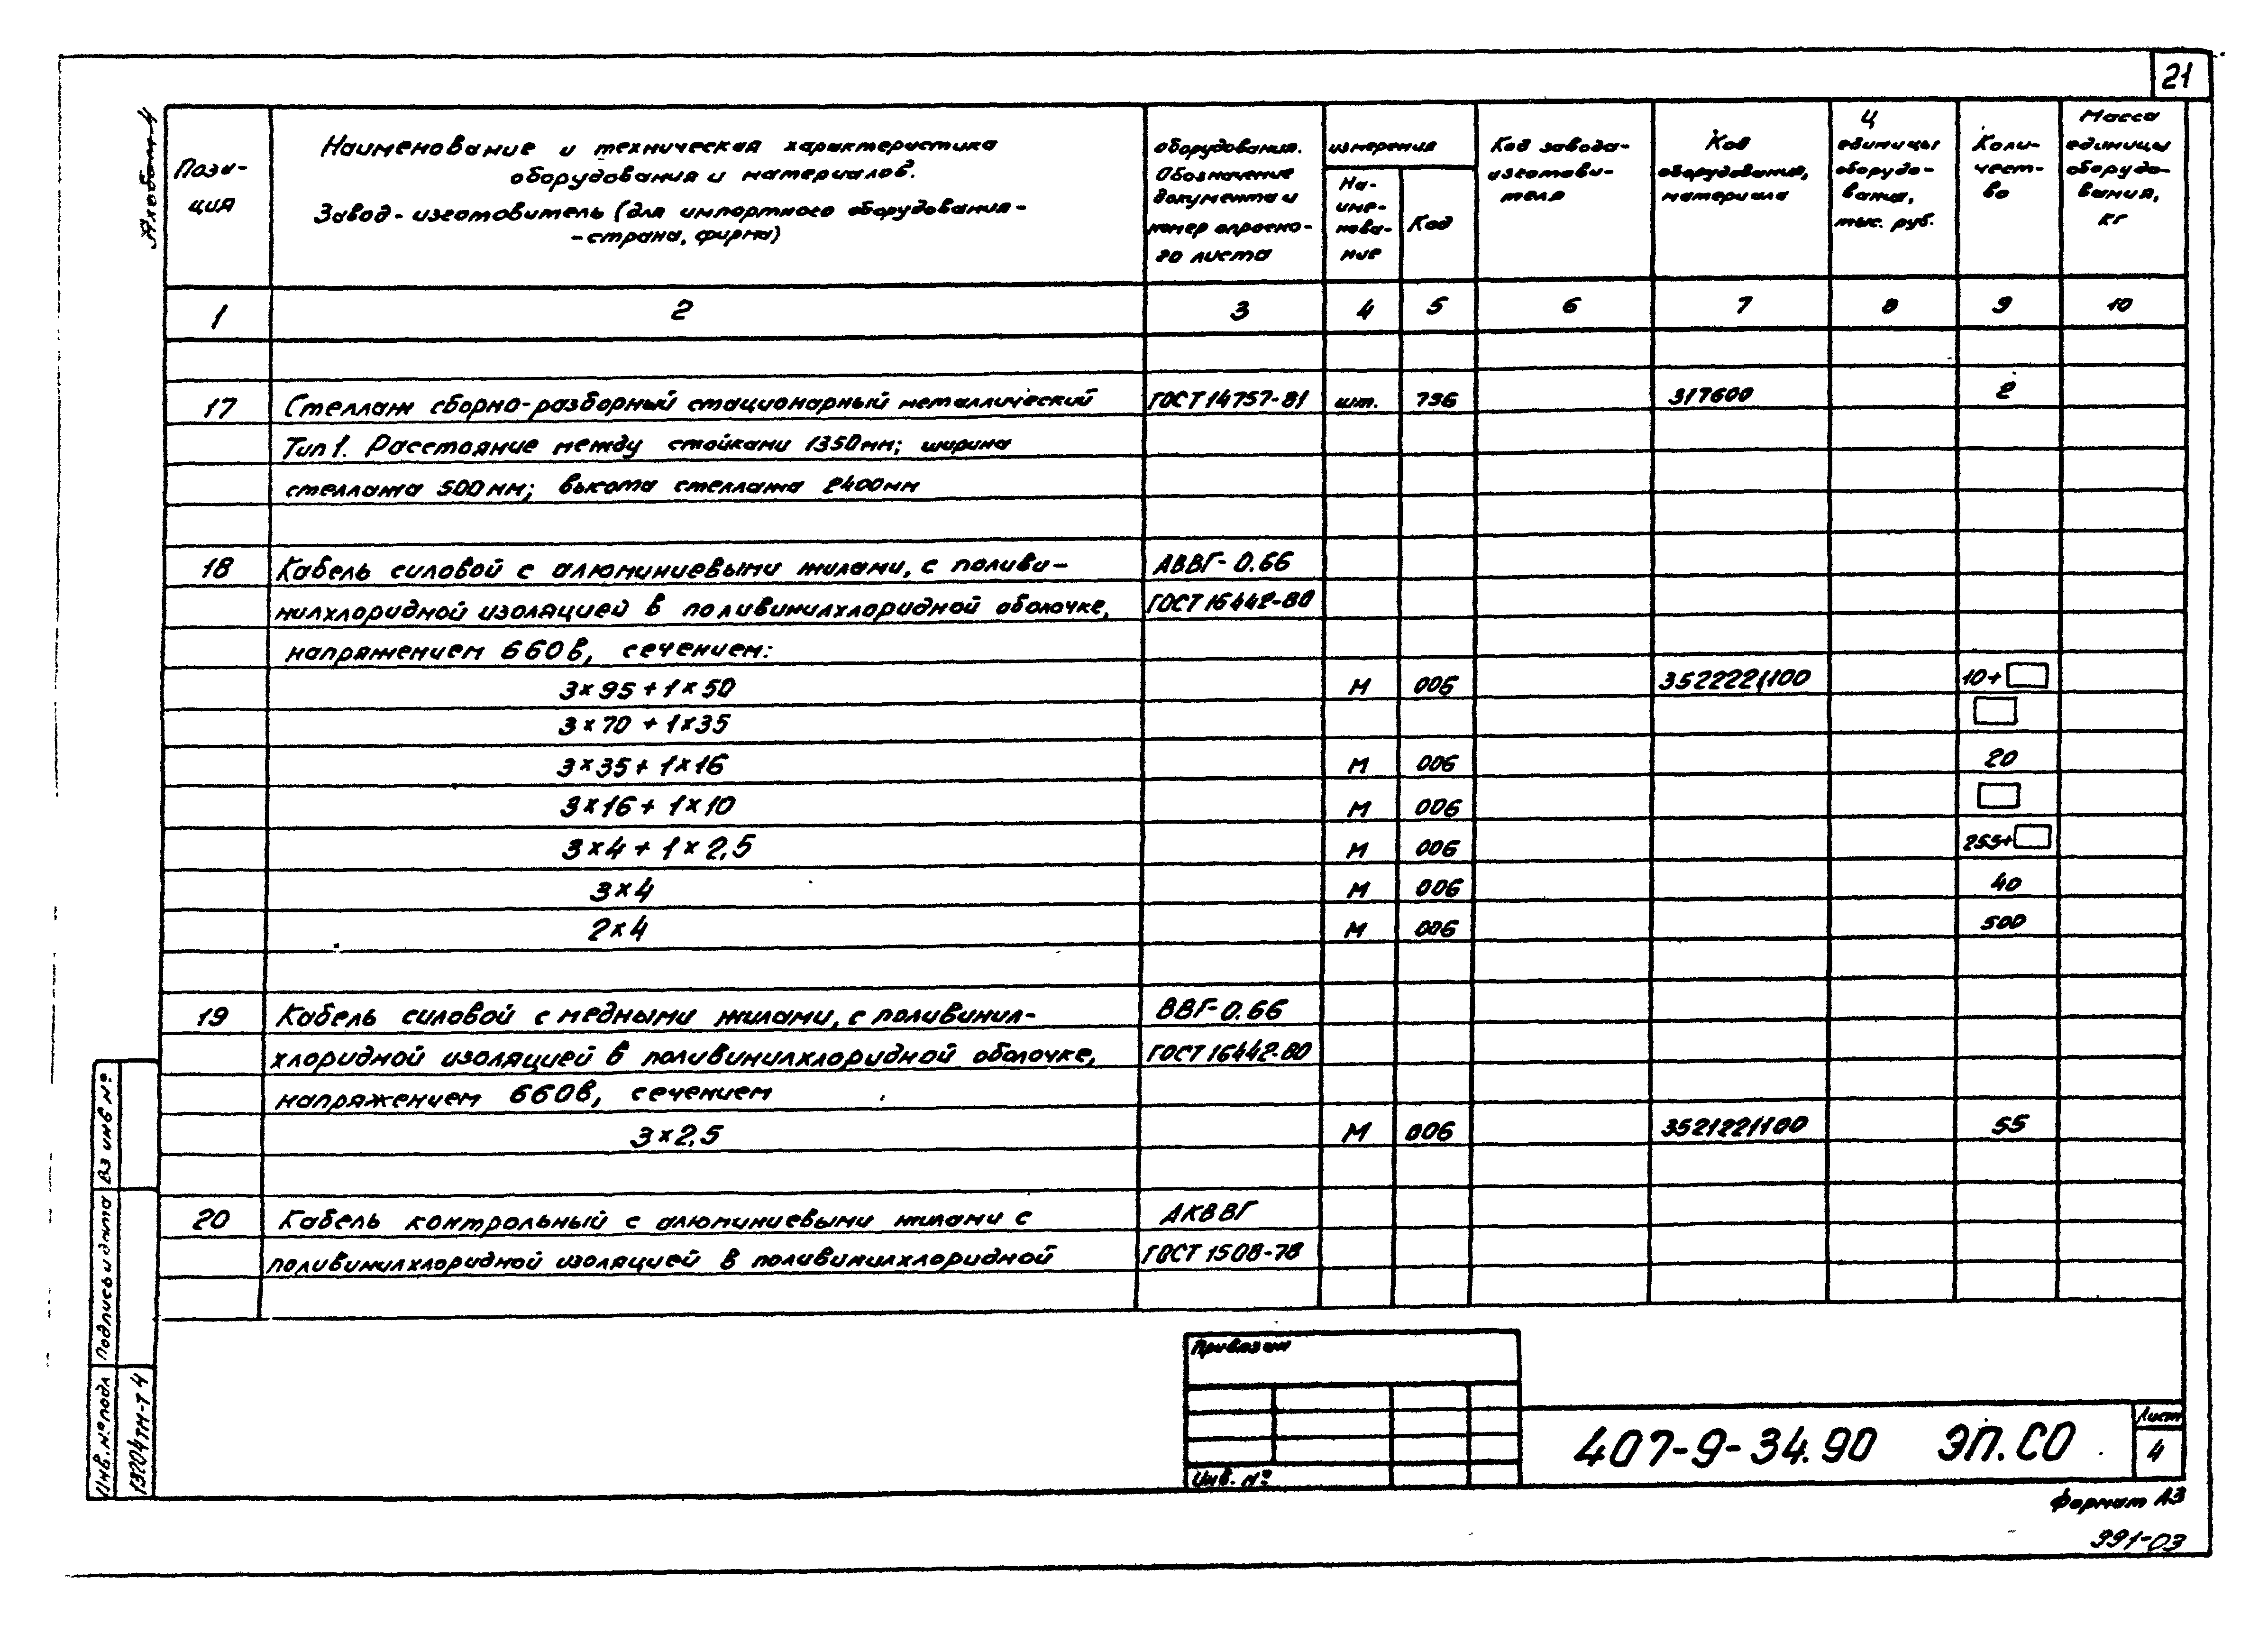 21
Альбом 4
Пози-
ция
Наименование и техническая характеристика
оборудования и материалов.
Завод-изготовитель (для импортного оборудования-
-страна, фирма)
оборудования.
Обозначение
документа и
номер опросно-
го листа
измерения
На-
име-
нова-
ние
Код
Код завода-
изготови-
теля
Код
оборудования,
материала
Ц
единицы
оборудо-
вания,
тыс. руб.
Коли-
чест-
во
Масса
единицы
оборудо-
вания,
кг
1 2 3 4 5 6 7 8 9 10
17 Стеллаж сборно-разборный стационарный металлический ГОСТ 14757-81 шт. 796 317600 2
Тип 1. Расстояние между стойками 1350мм; ширина
стеллажа 500мм; высота стеллажа 2400мм
18 Кабель силовой с алюминиевыми жилами, с поливи- АВВГ-0.66
нилхлоридной изоляцией в поливинилхлоридной оболочке, ГОСТ 16442-80
напряжением 660в, сечением:
3×95+1×50 М 006 3522221100 10+
3×70+1×35
3×35+1×16 М 006 20
3×16+1×10 М 006
3×4+1×2,5 М 006 255+
3×4 М 006 40
2×4 М 006 500
19 Кабель силовой с медными жилами, с поливинил- ВВГ-0.66
хлоридной изоляцией в поливинилхлоридной оболочке, ГОСТ 16442-80
напряжением 660в, сечением
3×2,5 М 006 3521221100 55
20 Кабель контрольный с алюминиевыми жилами с АКВВГ
поливинилхлоридной изоляцией в поливинилхлоридной ГОСТ 1508-78
Вз инв №
Подпись и дата
Инв. № подл
13204тм-т4
Привязан
Инв. №
407-9-34.90 ЭП.СО
Лист
4
Формат А3
991-03